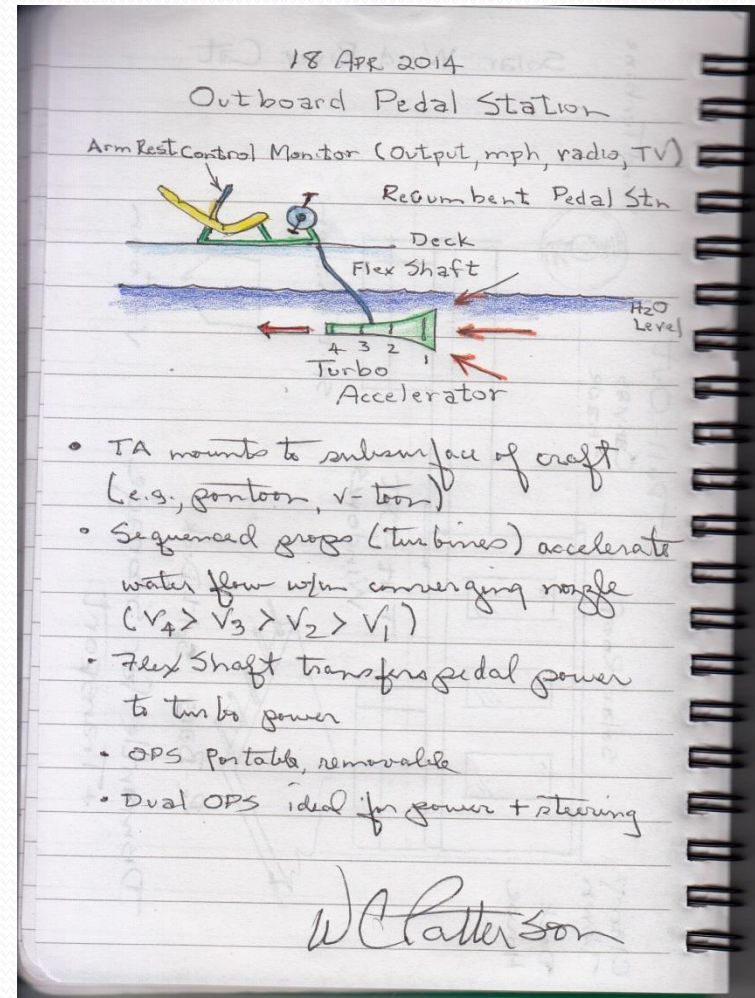 18 APR 2014
Outboard Pedal Station
Arm Rest Control Monitor (Output, mph, radio, TV)
Recumbent Pedal Stn
Deck
Flex Shaft
H2O
Level
4 3 2 1
Turbo
Accelerator
• TA mounts to subsurface of craft
(e.g., pontoon, v-toon)
• Sequenced props (turbines) accelerate
water flow w/in converging nozzle
(V4 > V3 > V2 > V1)
• Flex Shaft transfers pedal power
to turbo power
• OPS Portable, removable
• Dual OPS ideal for power + steering
WC Patterson